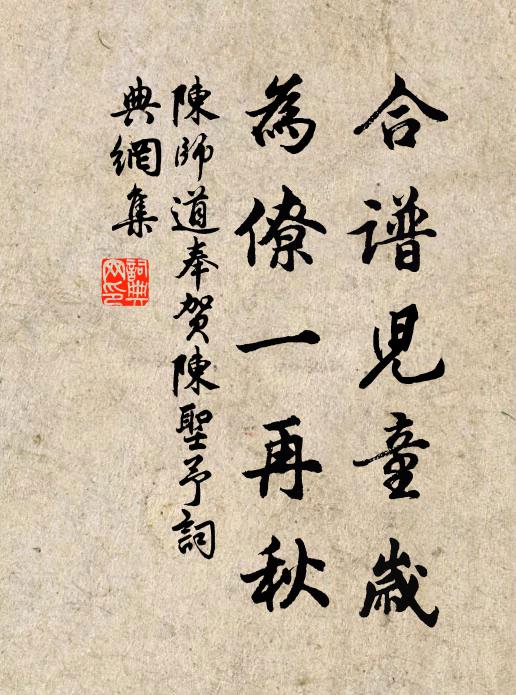 合谱児童歲
為僚一再秋
陳師道奉賀陳聖予詞
典網集
詞典网印